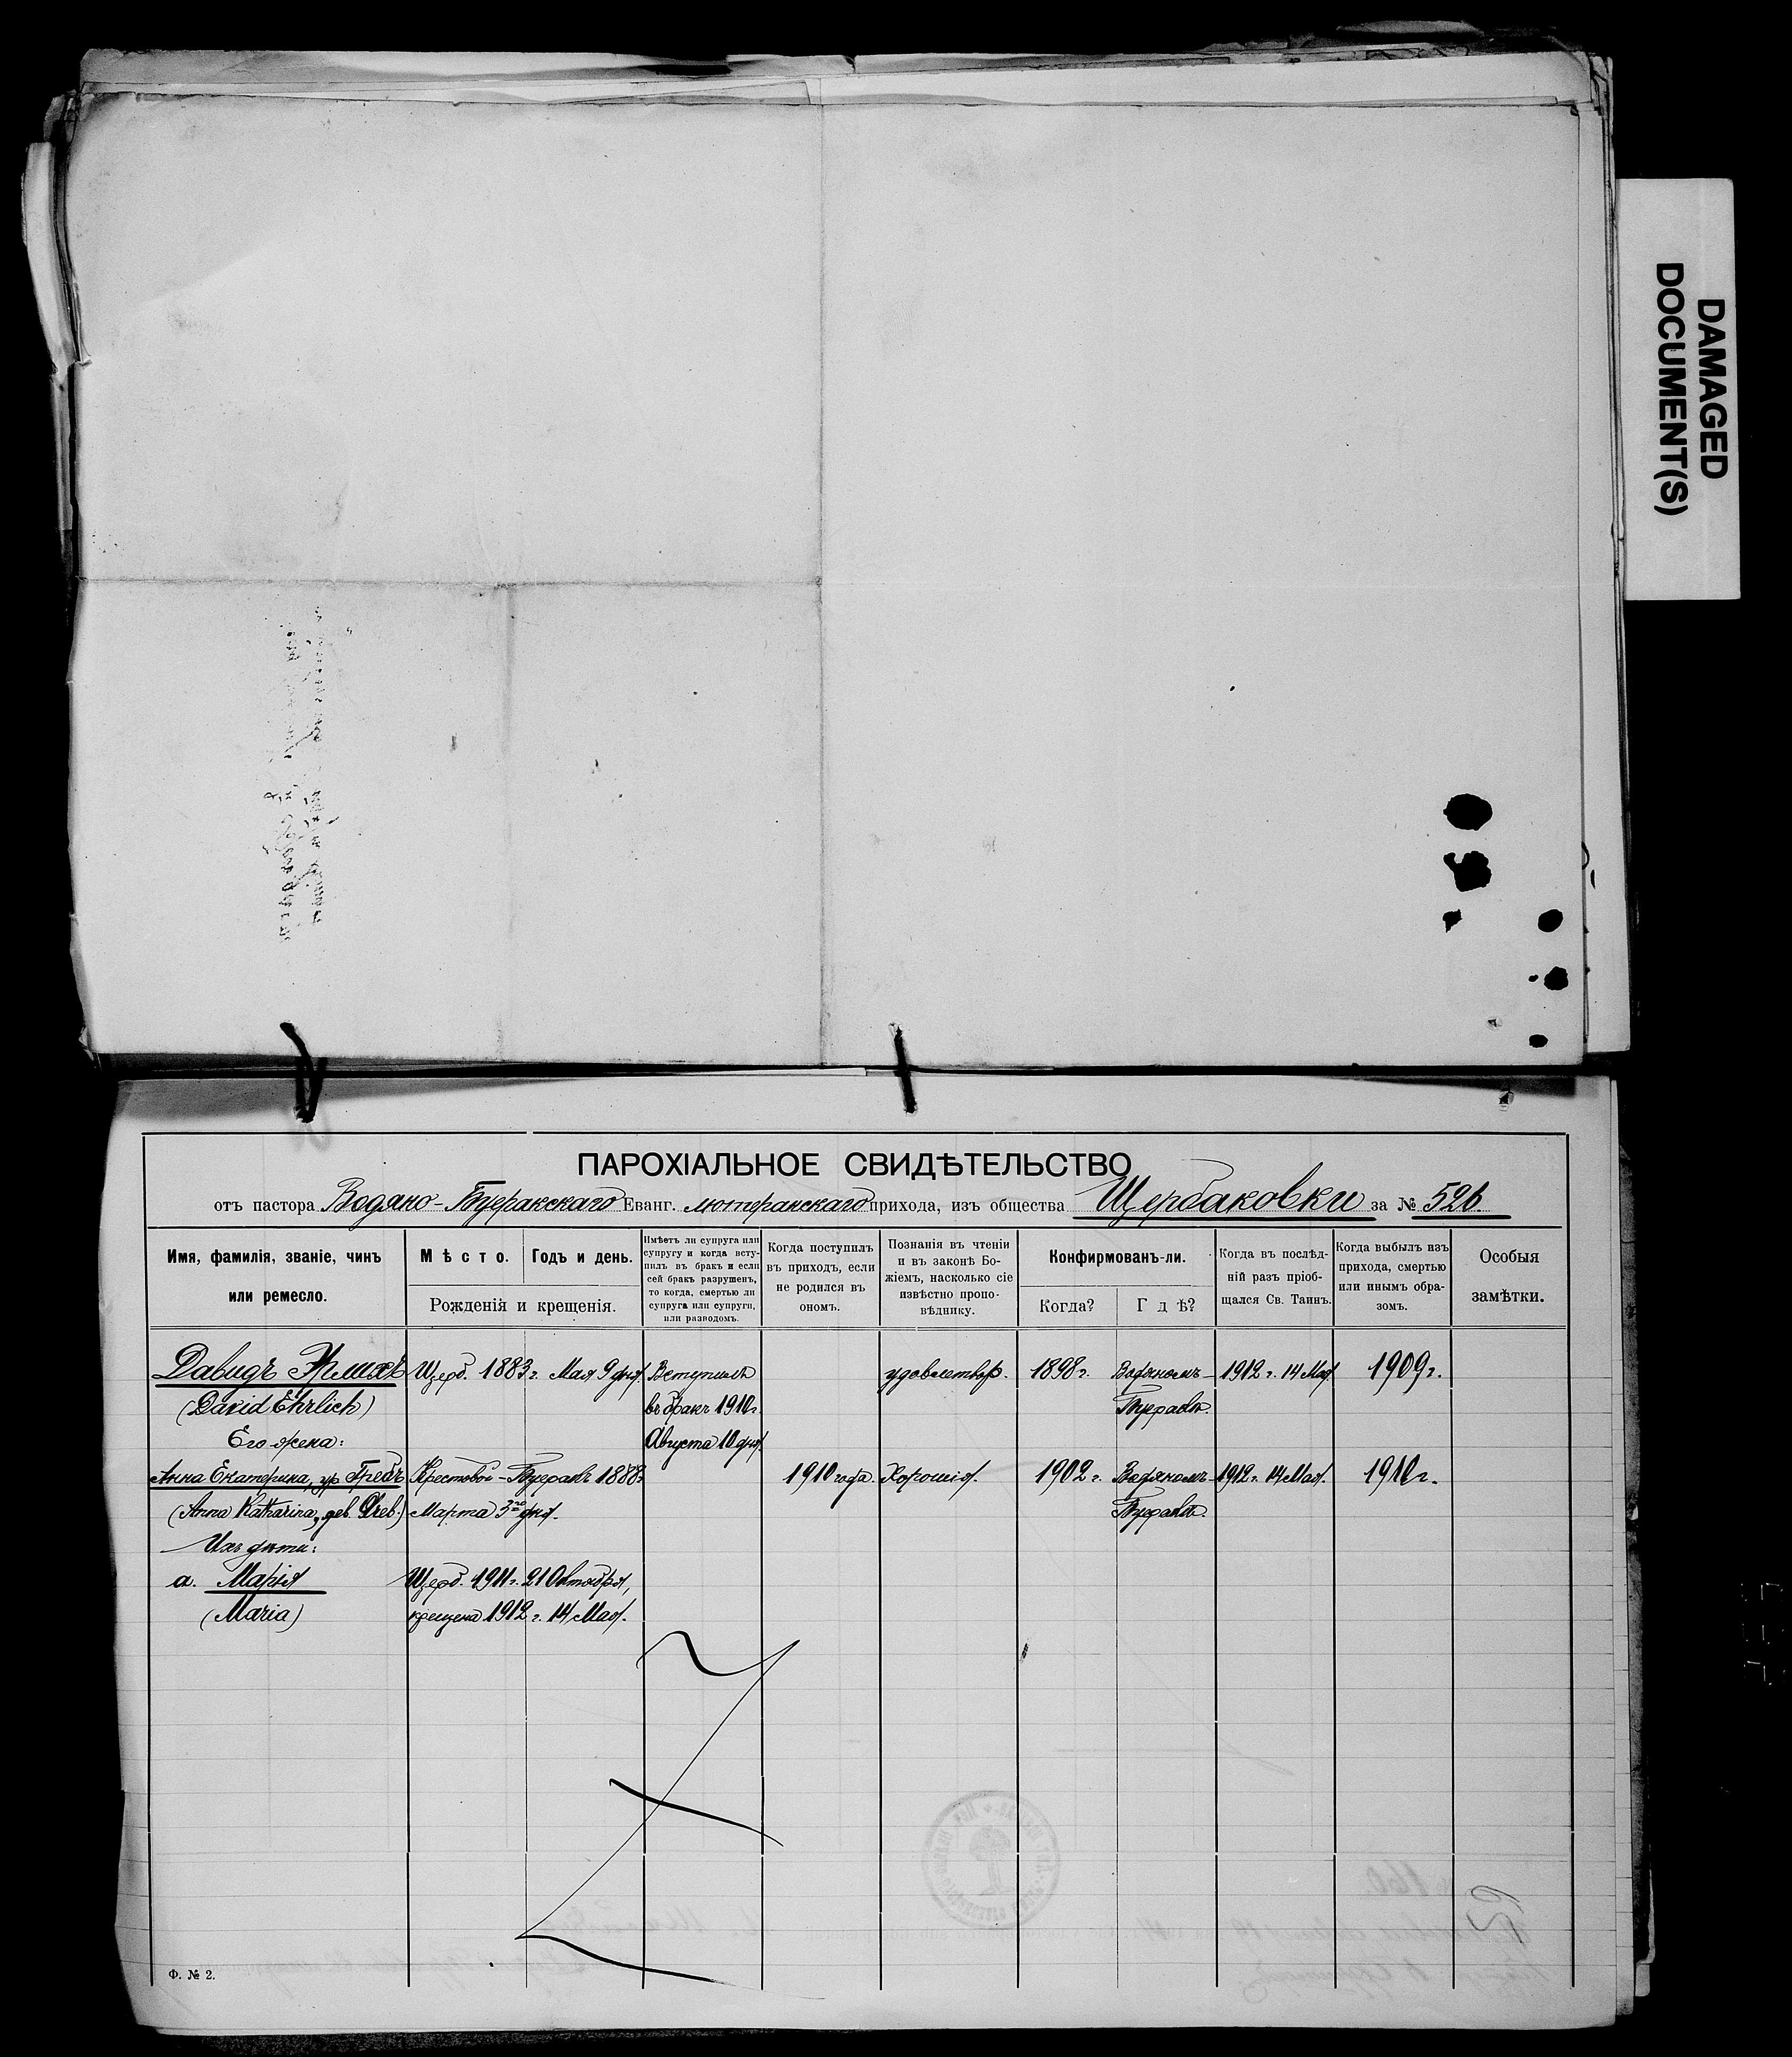 DAMAGED
DOCUMENT(S)
ПАРОХІАЛЬНОЕ СВИДѢТЕЛЬСТВО
отъ пастора Водяно-Буеракскаго Еванг. лютеранскаго прихода, изъ общества Щербаковки за № 526
Имя, фамилія, званіе, чинъ
или ремесло.
Мѣсто.
Годъ и день.
Рожденія и крещенія.
Имѣетъ ли супруга или
супругу и когда всту-
пилъ въ бракъ и если
сей бракъ разрушенъ,
то когда, смертью ли
супруга или супруги,
или разводомъ.
Когда поступилъ
въ приходъ, если
не родился въ
ономъ.
Познанія въ чтеніи
и въ законѣ Бо-
жіемъ, насколько сіе
извѣстно пропо-
вѣднику.
Конфирмованъ-ли.
Когда?
Гдѣ?
Когда въ послѣд-
ній разъ пріоб-
щался Св. Таинъ.
Когда выбылъ изъ
прихода, смертью
или инымъ обра-
зомъ.
Особыя
замѣтки.
Давидъ Эрлихъ Щерб. 1883 г. Мая 9 дня. Вступилъ удовлетвор. 1898 г. Водяномъ- 1912 г. 14 Мая. 1909 г.
(David Ehrlich) въ бракъ 1910 г. Буеракѣ.
Его жена: Августа 10 дня.
Анна Екатерина, ур. Гребъ Крестовой-Буеракъ 1888 г. 1910 года. Хорошія. 1902 г. Водяномъ- 1912 г. 14 Мая. 1910 г.
(Anna Katharina, geb. Greb.) Марта 3го дня. Буеракѣ.
Ихъ дѣти:
а. Марія Щерб. 1911 г. 21 Октября,
(Maria) крещена 1912 г. 14 Мая.
Ф. № 2.